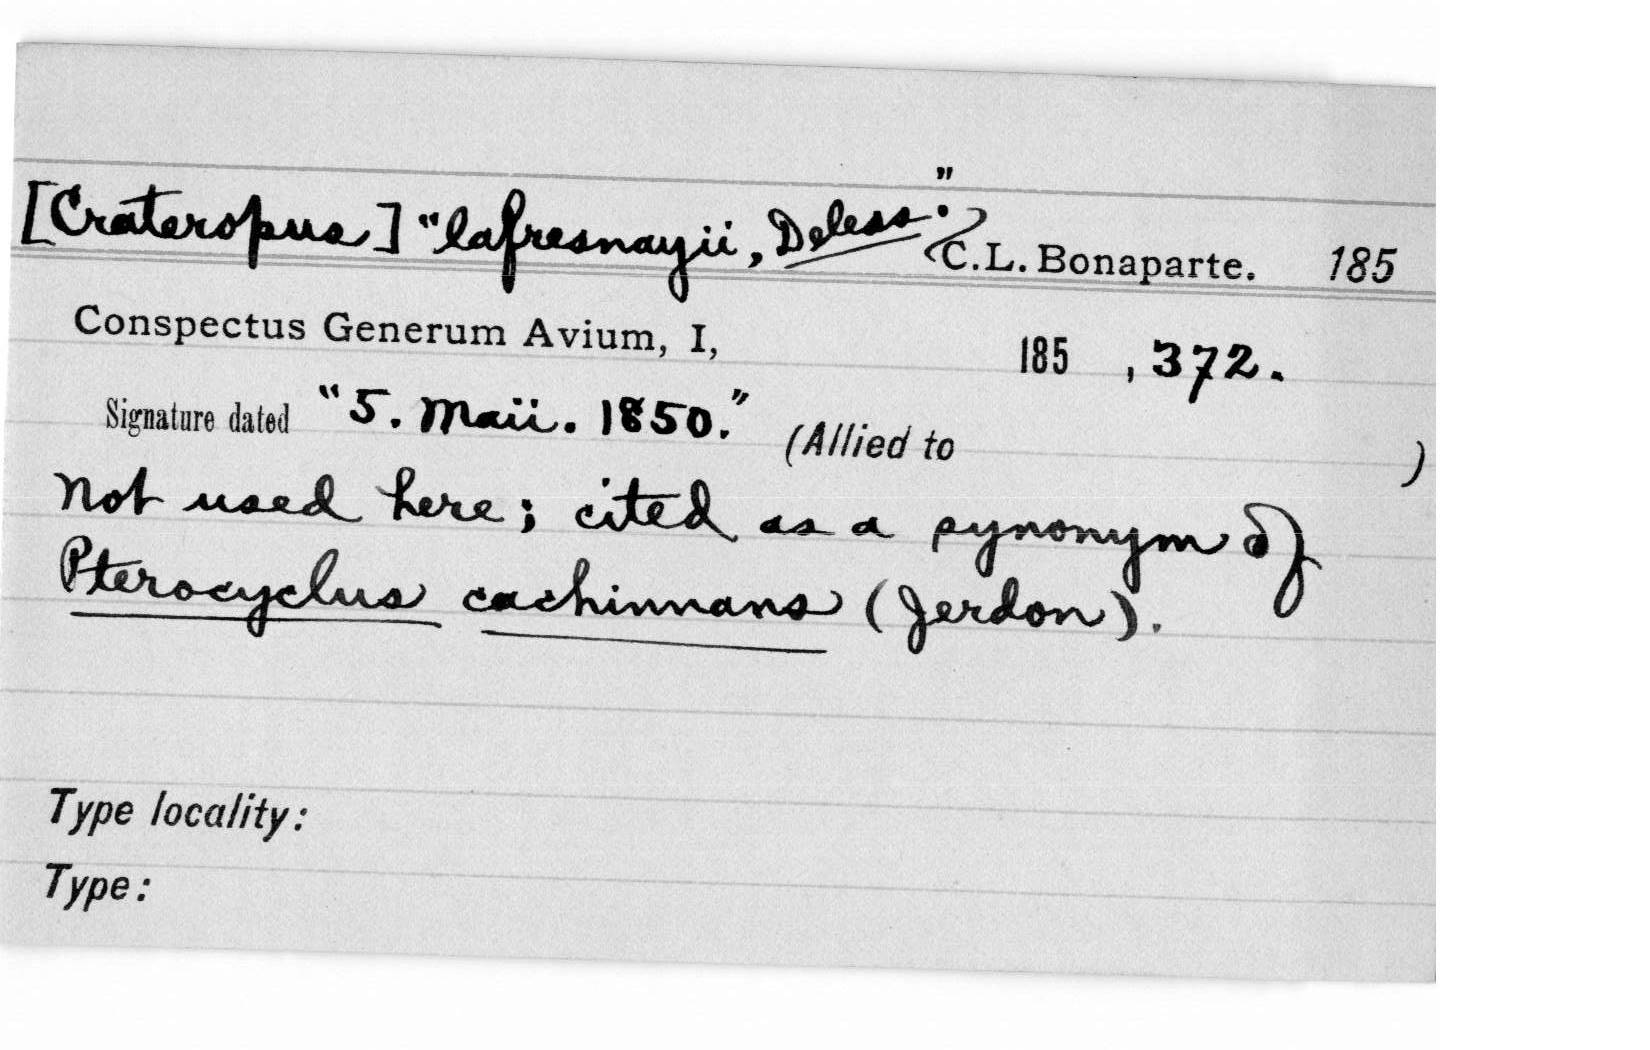 [Crateropus] "lafresnayii, Deless." C.L. Bonaparte. 185
Conspectus Generum Avium, I, 185 , 372.
Signature dated "5. Maii. 1850." (Allied to )
Not used here; cited as a synonym of
Pterocyclus cachinnans (Jerdon).
Type locality:
Type: